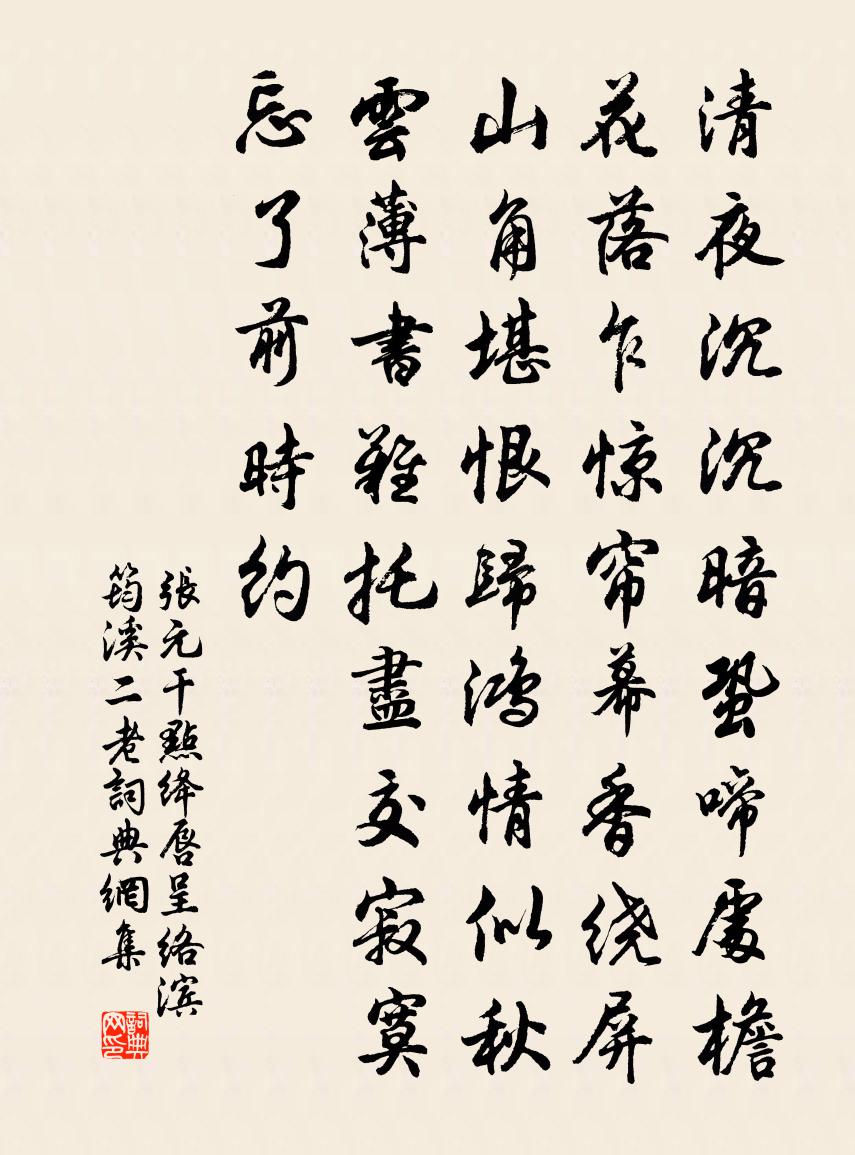 清夜沉沉暗蛩啼處檐
花落乍惊帘幕香绕屏
山角堪恨歸鴻情似秋
雲薄書難托盡交寂寞
忘了前時約
張元干點绛唇呈络滨
筠溪二老詞典網集
詞典網印